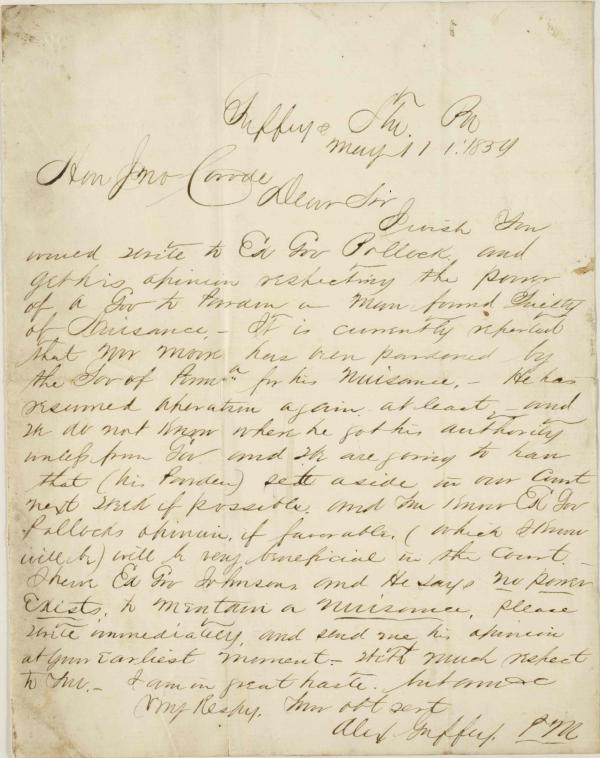 Guffey's Stn. Pa
May 11 1859
Hon Jno Covode
Dear Sir
I wish You
would write to Ex Gov Pollock, and
get his opinion respecting the power
of a Gov to Pardon a Man found Guilty
of Nuisance, - It is currently reported
that Mr Moore has been pardoned by
the Gov of Penna for his Nuisance, - He has
resumed operation again at least, - and
we do not know where he got his authority
unless from Gov and we are going to have
that (his Pardon) sett aside in our Court
next week if possible, and You know Ex Gov
Pollocks opinion, if favorable, (which I know
will be) will be very beneficial in the Court. -
I have Ex Gov Johnsons, and He says no power
Exists, to mentain a nuisance, Please
write immediately, and send me his opinion
at your Earliest moment - With much respect
to You. - I am in great haste, but am &c
Very Respy. Your obt sert
Alex Guffey. P M